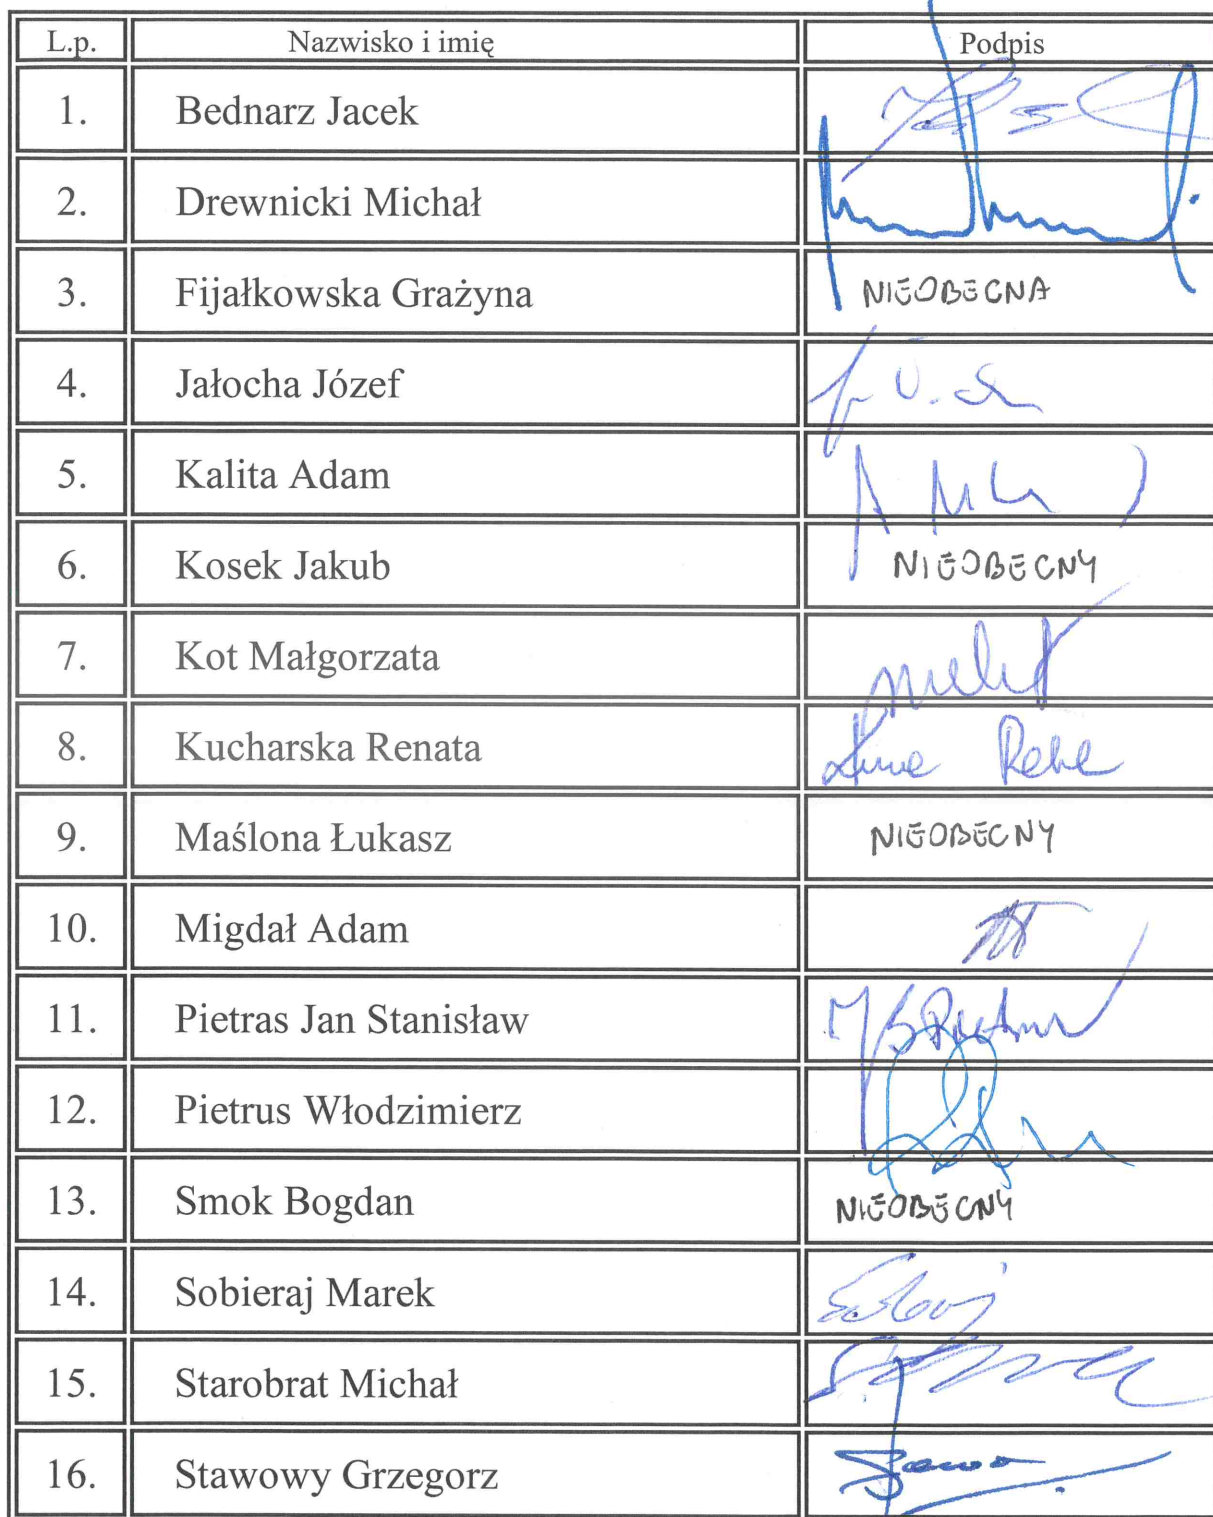 L.p. Nazwisko i imię Podpis
1. Bednarz Jacek
2. Drewnicki Michał
3. Fijałkowska Grażyna NIEOBECNA
4. Jałocha Józef
5. Kalita Adam
6. Kosek Jakub NIEOBECNY
7. Kot Małgorzata
8. Kucharska Renata
9. Maślona Łukasz NIEOBECNY
10. Migdał Adam
11. Pietras Jan Stanisław
12. Pietrus Włodzimierz
13. Smok Bogdan NIEOBECNY
14. Sobieraj Marek
15. Starobrat Michał
16. Stawowy Grzegorz